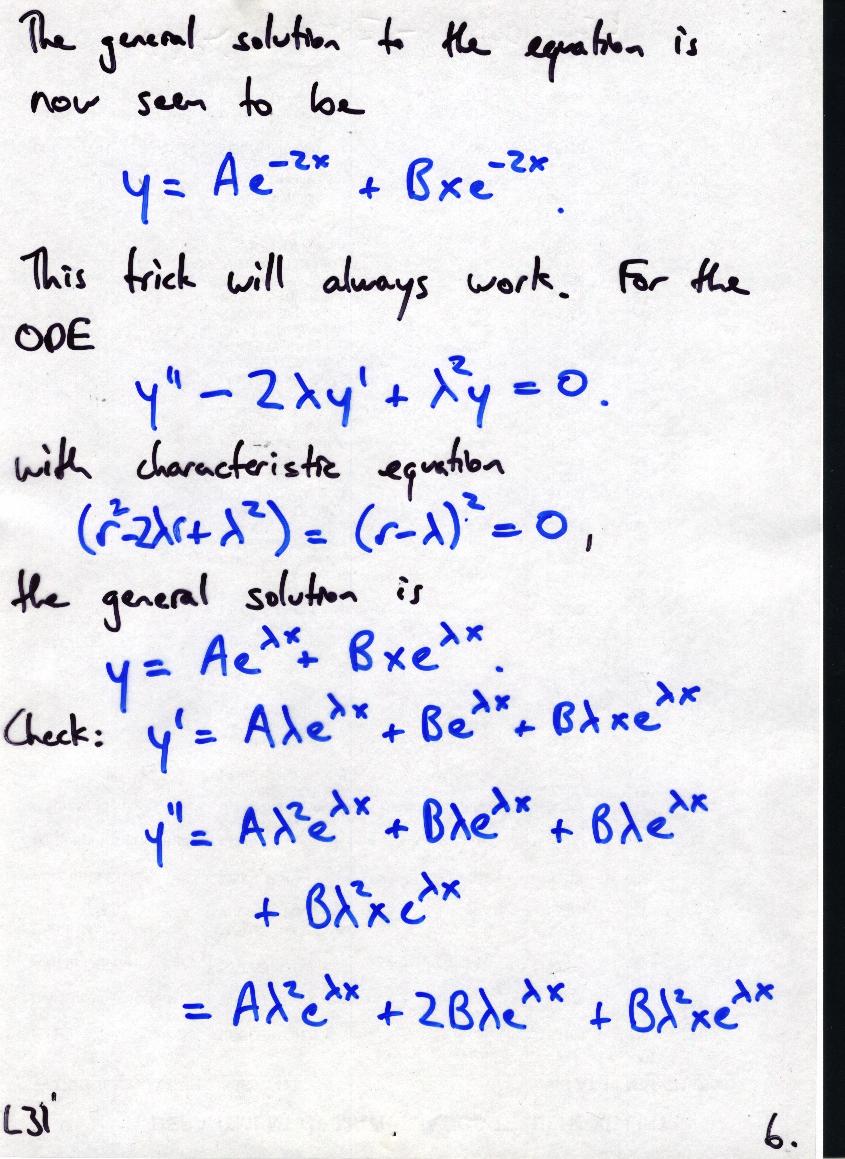 The general solution to the equation is
now seen to be
y = Ae^{-2x} + Bxe^{-2x}.
This trick will always work. For the
ODE
y'' - 2λy' + λ²y = 0.
with characteristic equation
(r²-2λr+λ²) = (r-λ)² = 0,
the general solution is
y = Ae^{λx} + Bxe^{λx}.
Check: y' = Aλe^{λx} + Be^{λx} + Bλxe^{λx}
y'' = Aλ²e^{λx} + Bλe^{λx} + Bλe^{λx}
+ Bλ²xe^{λx}
= Aλ²e^{λx} + 2Bλe^{λx} + Bλ²xe^{λx}
L31' 6.